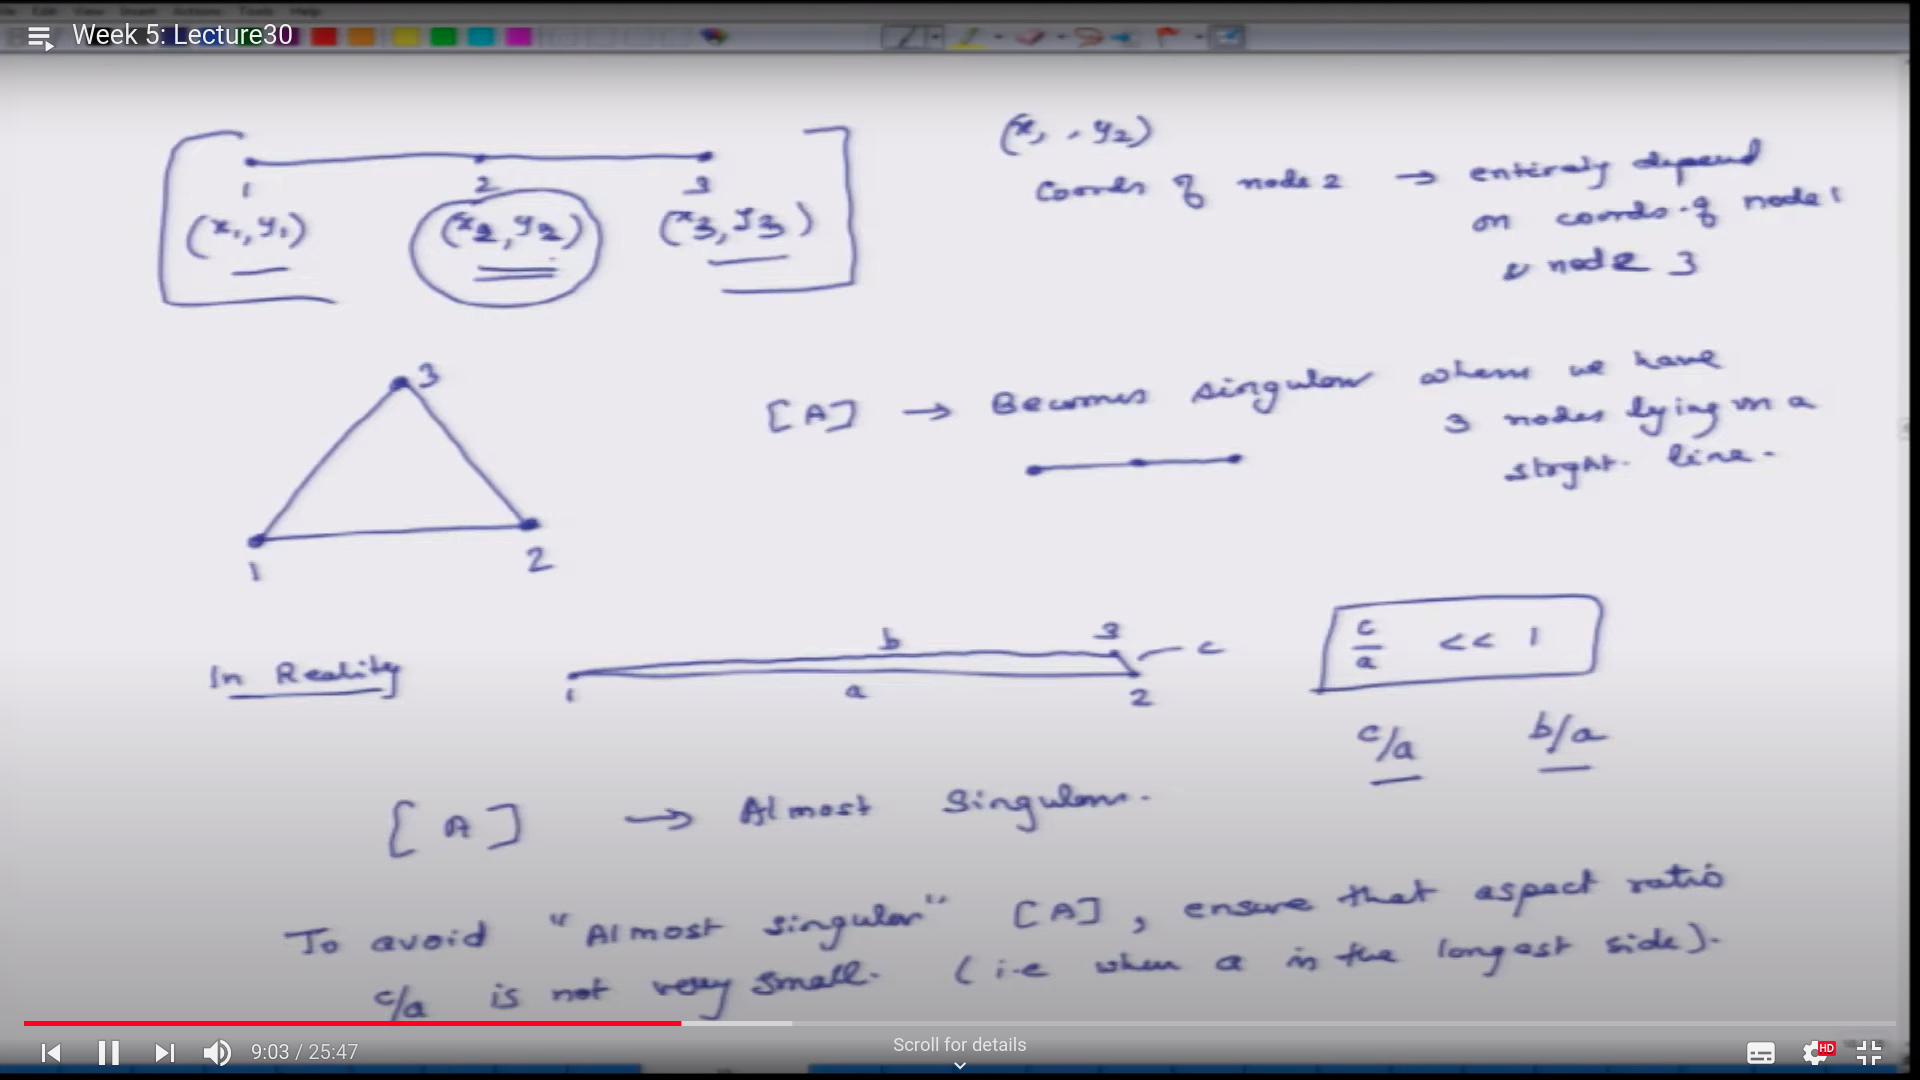 Week 5: Lecture30
(x, , y2)
1 2 3
(x1, y1) (x2, y2) (x3, y3)
Coords of node 2 → entirely depend
on coords. of node 1
& node 3
3
1 2
[A] → Becomes singular when we have
3 nodes lying on a
strght. line.
In Reality
b 3 c
1 a 2
c/a << 1
c/a b/a
[A] → Almost Singular.
To avoid "Almost singular" [A], ensure that aspect ratio
c/a is not very small. (i.e when a is the longest side).
9:03 / 25:47
Scroll for details
HD